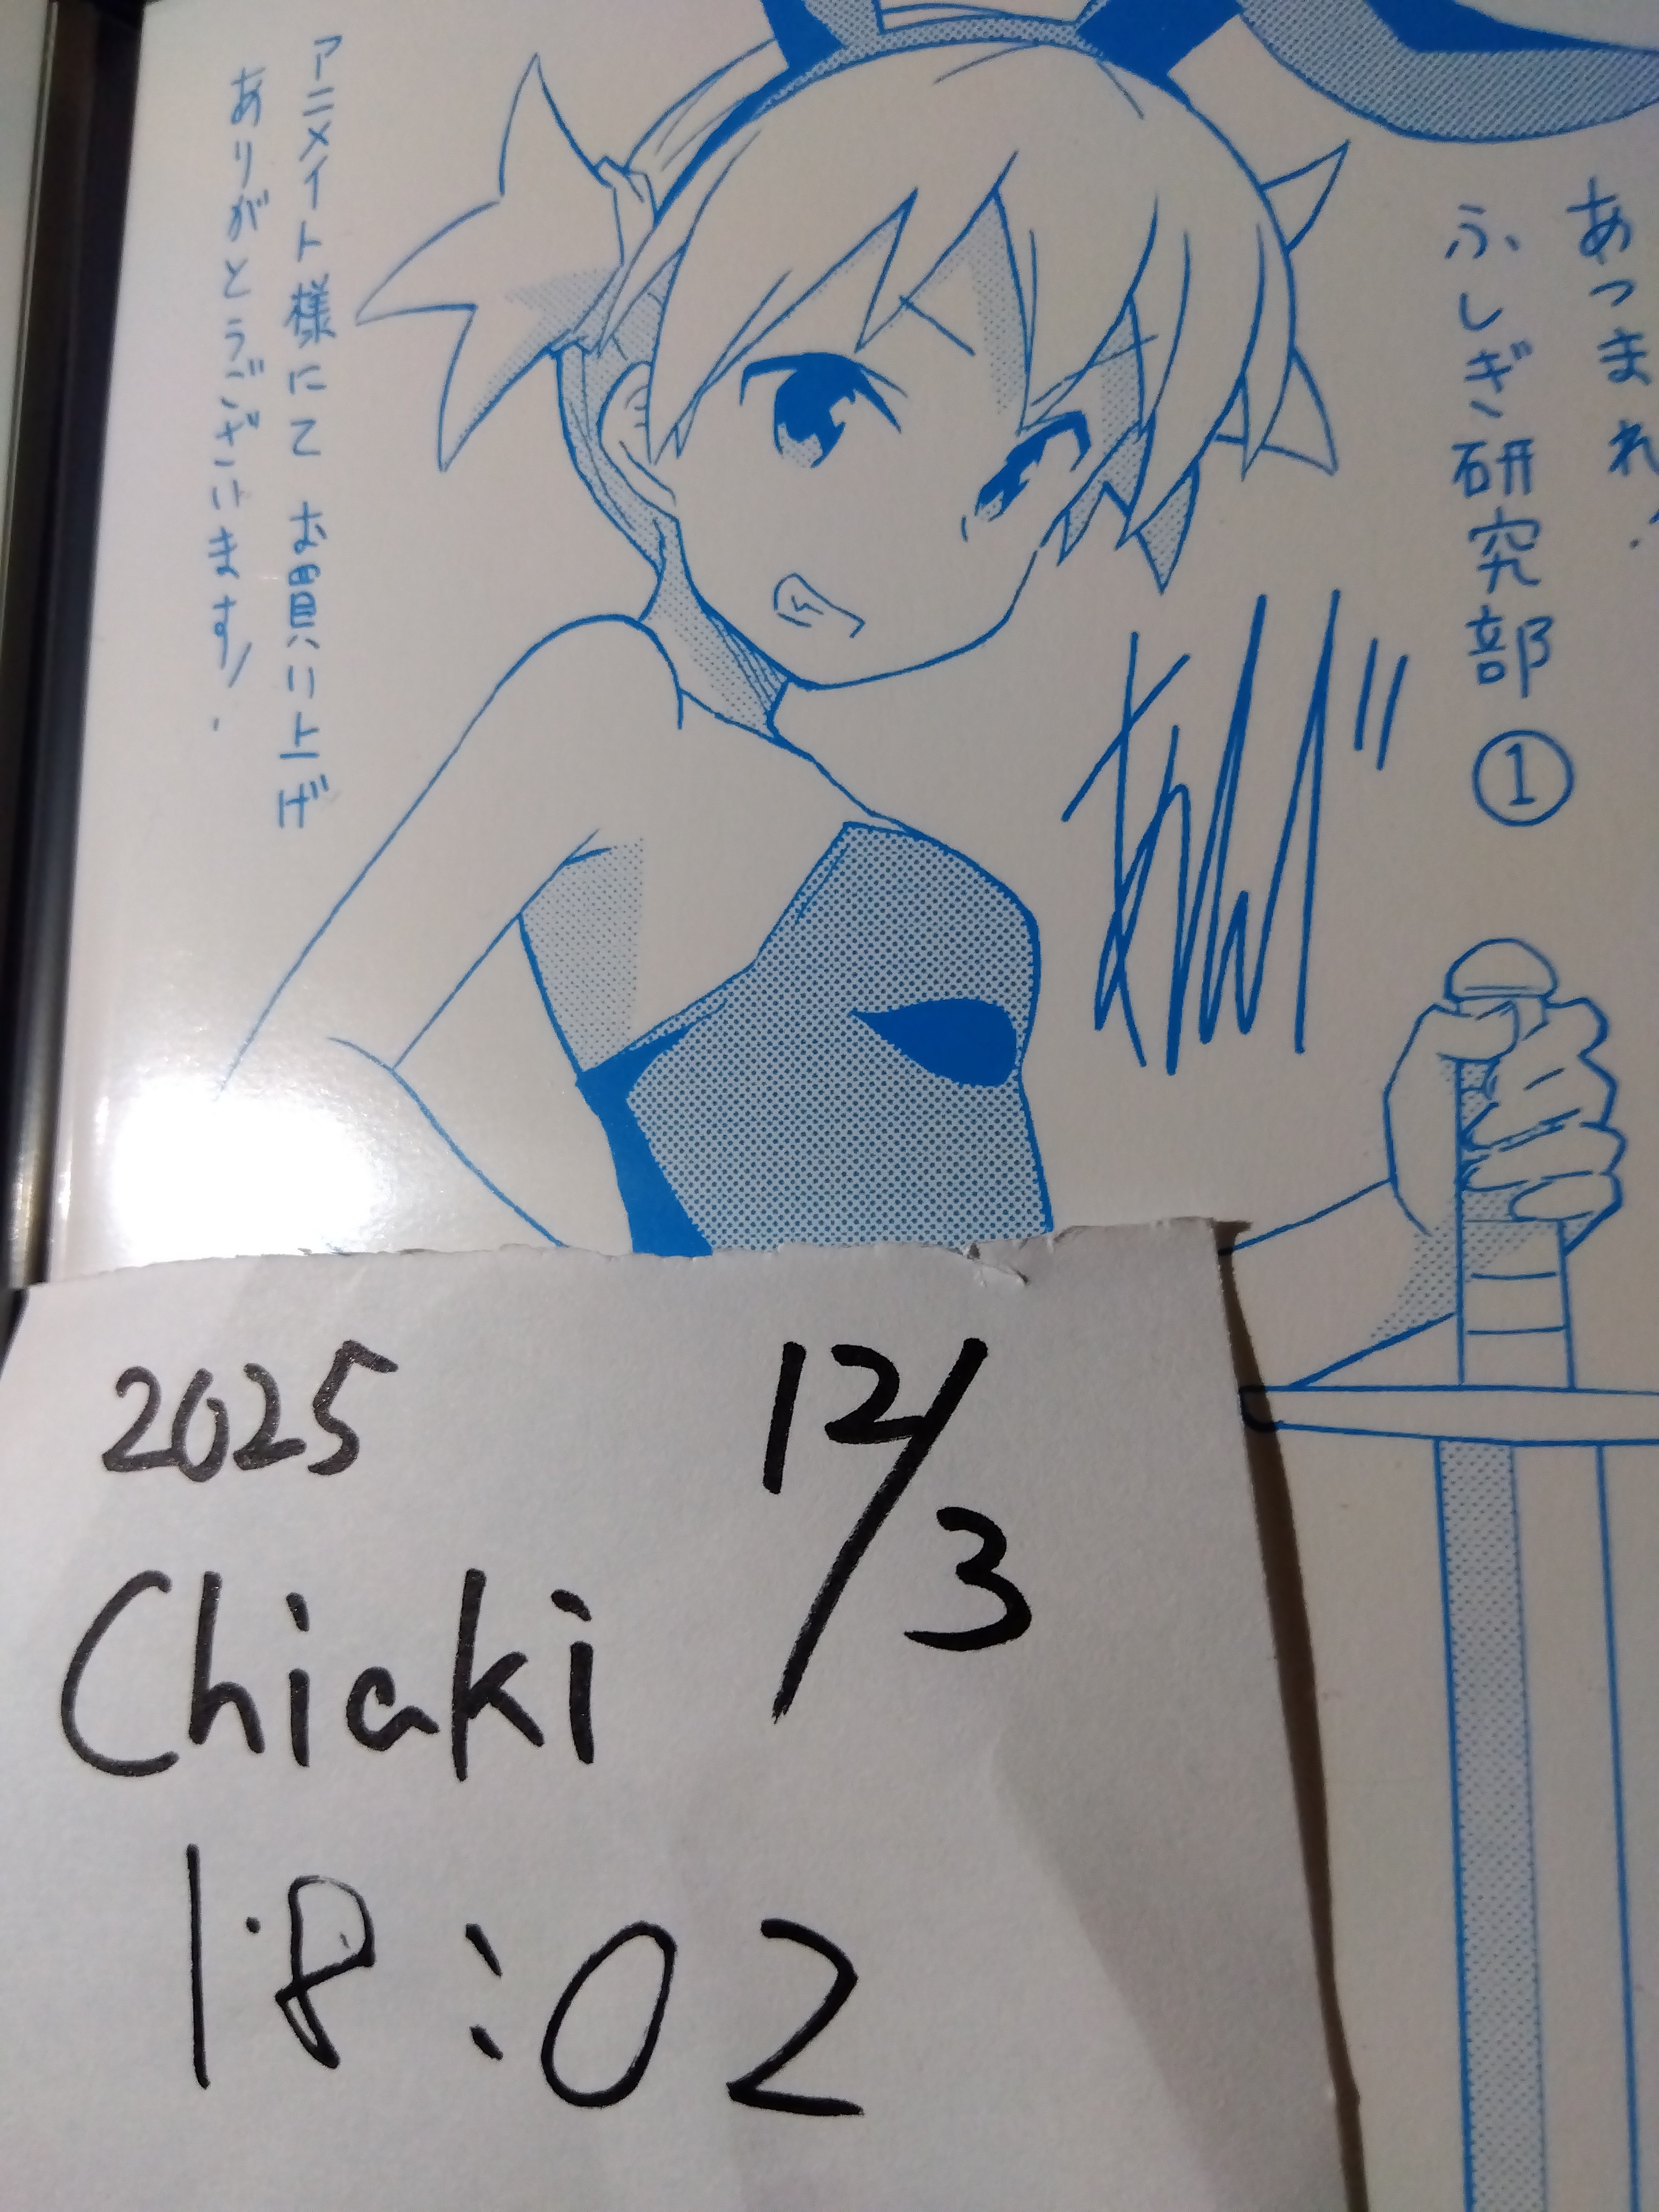 あつまれ!
ふしぎ研究部 ①
アニメイト様にて お買い上げ
ありがとうございます!
2025 12/3
Chiaki
18:02